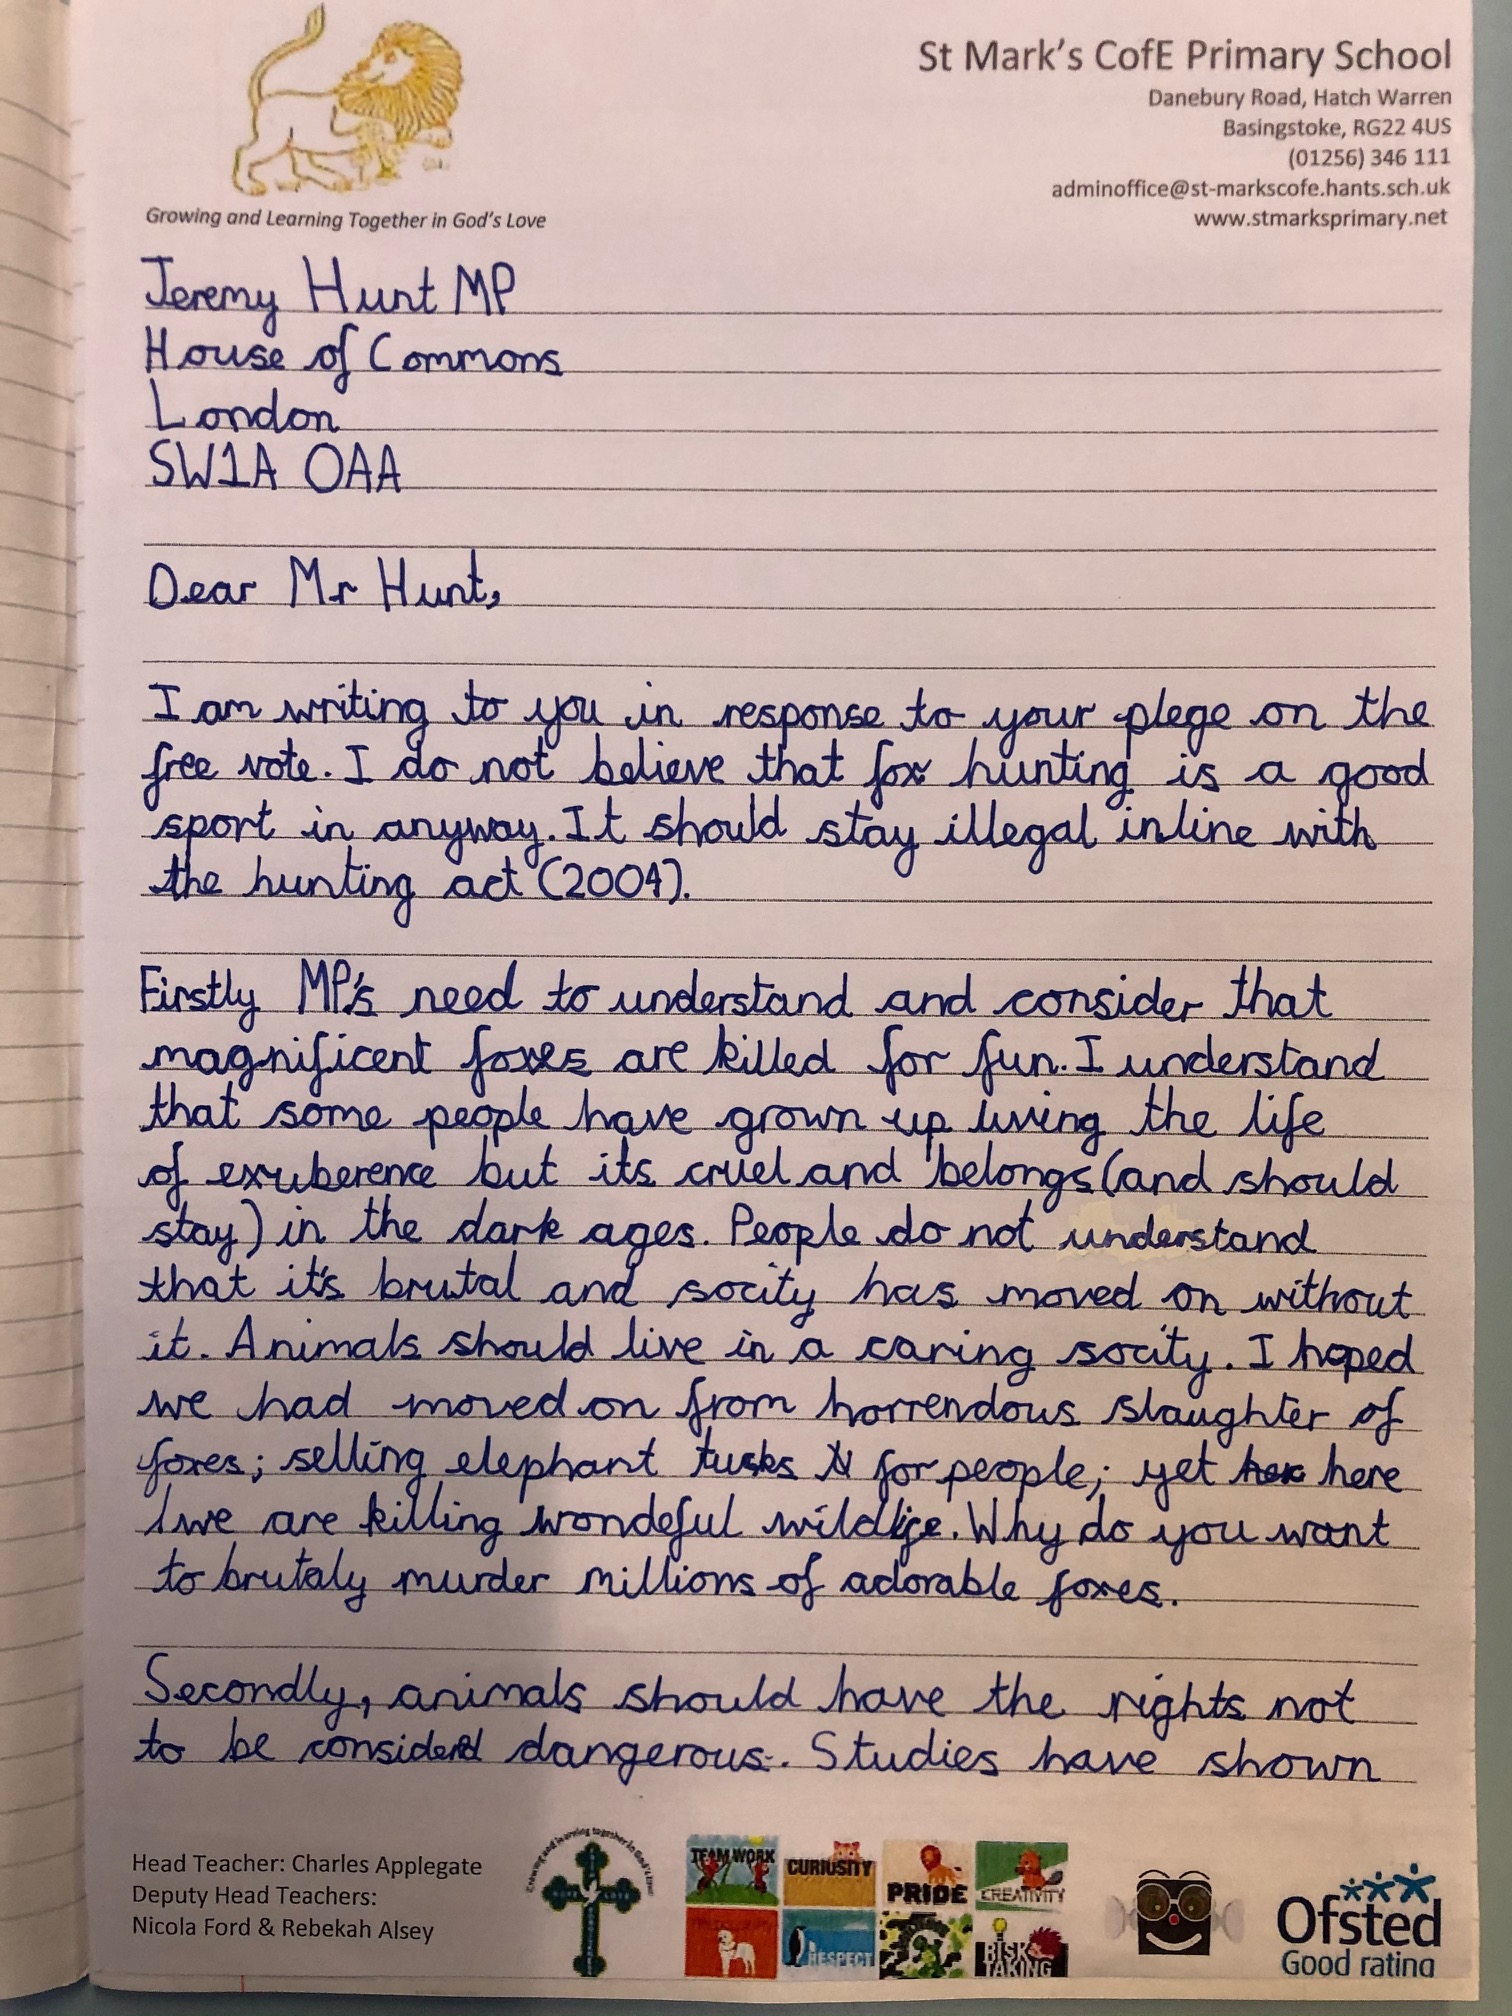 St Mark's CofE Primary School
Danebury Road, Hatch Warren
Basingstoke, RG22 4US
(01256) 346 111
adminoffice@st-markscofe.hants.sch.uk
www.stmarksprimary.net
Growing and Learning Together in God's Love
Jeremy Hunt MP
House of Commons
London
SW1A 0AA
Dear Mr Hunt,
I am writing to you in response to your plege on the
free vote. I do not believe that fox hunting is a good
sport in anyway. It should stay illegal inline with
the hunting act (2004).
Firstly MP's need to understand and consider that
magnificent foxes are killed for fun. I understand
that some people have grown up living the life
of exuberence but its cruel and belongs (and should
stay) in the dark ages. People do not understand
that it's brutal and socity has moved on without
it. Animals should live in a caring socity. I hoped
we had moved on from horrendous slaughter of
foxes; selling elephant tusks for people; yet here
we are killing wondeful wildlife. Why do you want
to brutaly murder millions of adorable foxes.
Secondly, animals should have the rights not
to be considerd dangerous. Studies have shown
Head Teacher: Charles Applegate
Deputy Head Teachers:
Nicola Ford & Rebekah Alsey
Growing and learning together in God's love
TEAMWORK
CURIOSITY
PRIDE
CREATIVITY
RESPECT
RISK
TAKING
Ofsted
Good rating